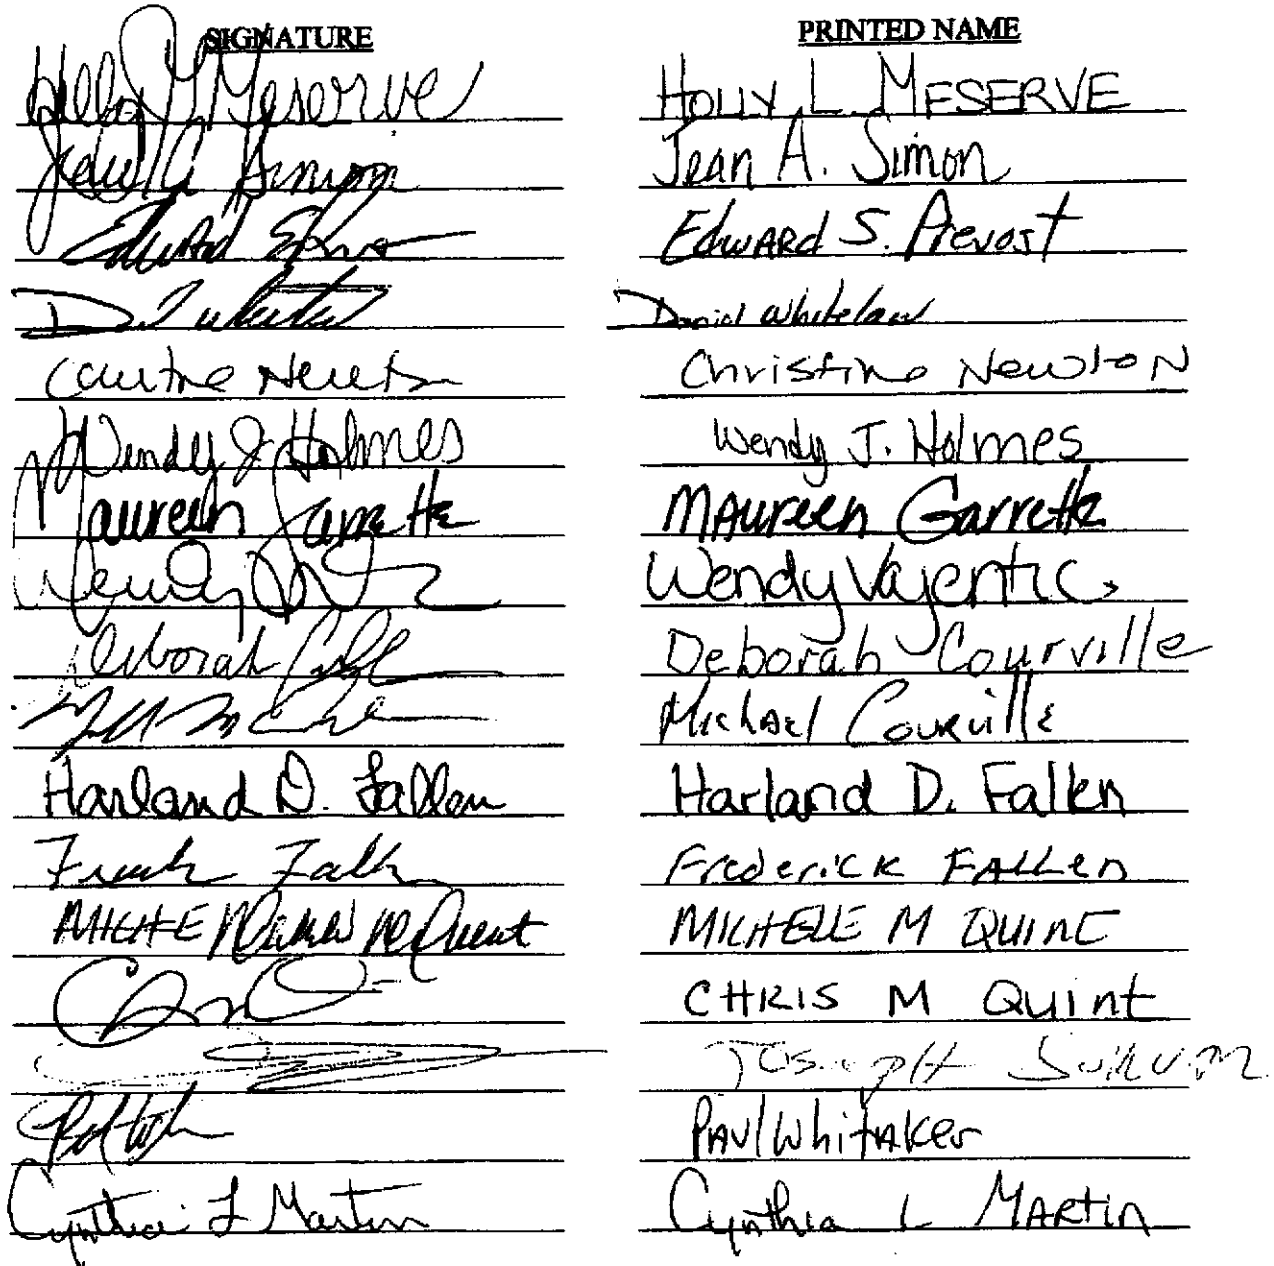 SIGNATURE PRINTED NAME
Holly L Meserve HOLLY L. MESERVE
Jean A Simon Jean A. Simon
Edward S. Edward S. Prevost
D Daniel Whitelaw
Christine Newton
Wendy J Holmes Wendy J. Holmes
Maureen Garrette Maureen Garrette
Wendy Wendy Vajentic
Deborah Deborah Courville
Michael Courville
Harland D. Fallen Harland D. Fallen
Frederick Fallen
MICHELE M Quint MICHELLE M QUINT
CHRIS M Quint
Joseph Sullivan
Paul Whitaker
Cynthia L Martin Cynthia L Martin